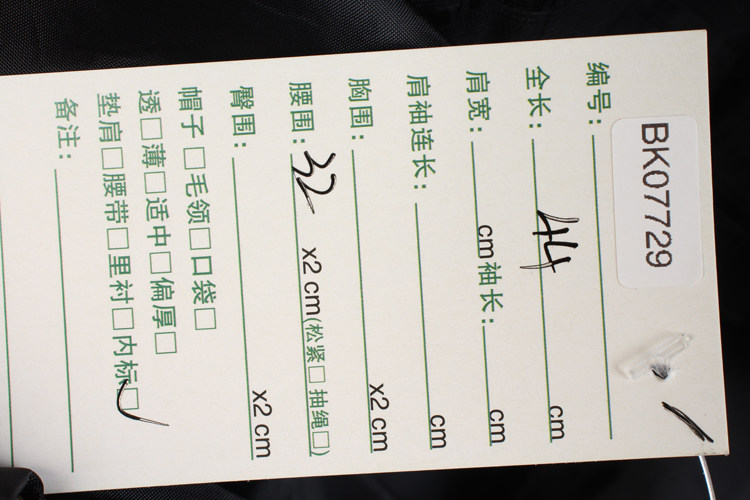 BK07729
编号:
全长: 44 cm
肩宽: cm 袖长: cm
肩袖连长: cm
胸围: x2 cm
腰围: 32 x2 cm (松紧□ 抽绳□)
臀围: x2 cm
帽子□ 毛领□ 口袋□
透□ 薄□ 适中□ 偏厚□
垫肩□ 腰带□ 里衬□ 内标□
备注: